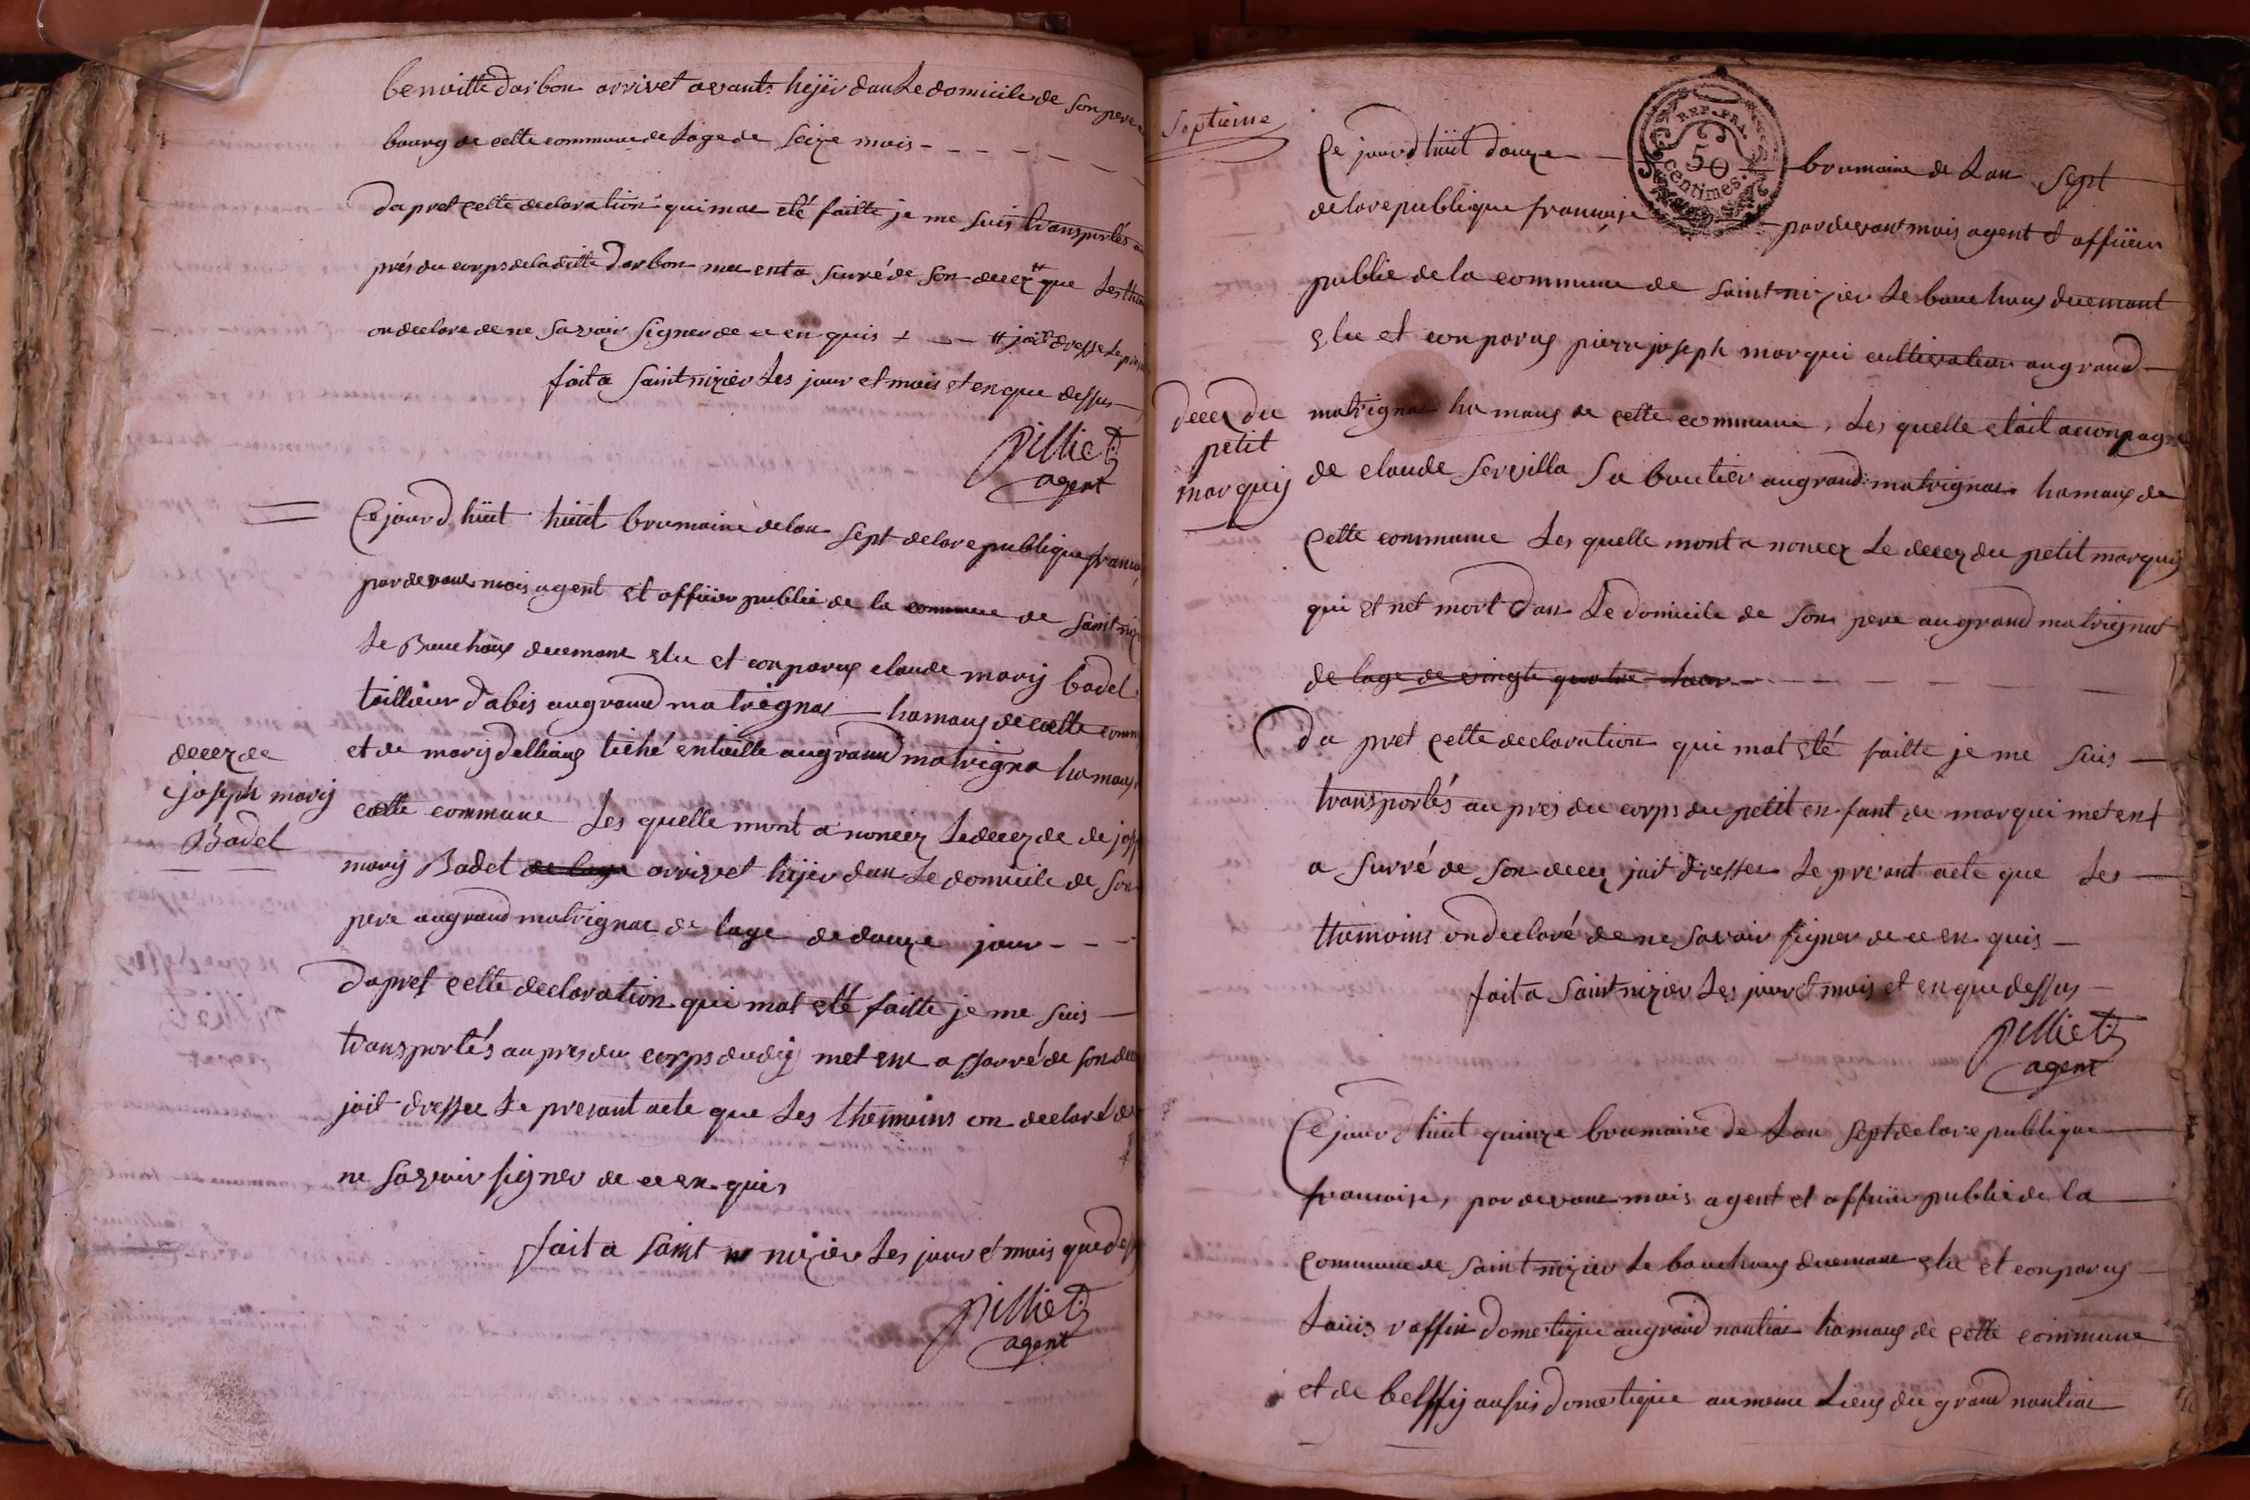 benoitte darbon arrivet avant hejër dan Le domicile de son pere
bourg de cette commune de Lage de seize mois
Da pret cette declaration qui mac eté faitte je me suis transportés au
prés du corps de laditte Darbon mac ent a surré de son decez # que Les thé
on declare de ne savoir signer de ce en quis # jait dresse Le pré
fait a saint nizier Les jour et mois et en que dessus
pilliet
agent
Ce jourd hüit hüit brumaire de lan sept de lare publique franco
par devant mois agent et officier public de la commune de saint niz
Le Bouchoux ducmant elu et conparus claude marij badel
taillieur d'abis au grand matrignac hamaux de cette comm
et de marij delliaux liché en taille au grand matrigna hamaux
cette commune Les quelle mont a noncer Le decez de de jos
marij Badel de lage arrivet hijer dan Le domicile de son
pere au grand matrignac de lage de douze jour
decez de
joseph marij
Badel
Dapret cette declaration qui mat eté faitte je me suis
transportés au pres du corps dudij met ent a ssurré de son de
jait dresser Le presant acte que Les themoins on declaré de
ne savoir signer de ce en quis
fait a saint nizier Les jour et mois que dess
pilliet
agent
septieme
REP. FRA.
50
centimes
Ce jourd hüit douze brumaire de Lan sept
de lare publique francaise par devant mois agent & officier
public de la commune de saint nizier Le bouchoux ducmant
elu et conparus pierre joseph marqui cultivateur au grand
decez du
petit
marquij
matrignac hamaux de cette commune, Les quelle etait acconpagné
de claude servilla sa boutier au grand matrignac hamaux de
Cette commune Les quelle mont a noncer Le decez du petit marquij
qui et net mort dan Le domicile de son pere au grand matrignat
de lage de vingte quatre heur
Da pret cette declaration qui mat eté faitte je me suis
transportés au pres du corps du petit enfant de marqui met ent
a surré de son decez jait dresser Le presant acte que Les
themoins on declaré de ne savoir signer de ce en quis
fait a saint nizier Les jour et mois et en que dessus
pilliet
agent
Ce jourd hüit quinze brumaire de Lan sept de lare publique
francoise, par devant mois agent et officier public de la
commune de saint nizier Le bouchoux ducmant elu et conparus
Louis vaffin dometique au grand nantiac hamaux de cette commune
et de belffij aussis dometique au meme Lieux du grand nantiac